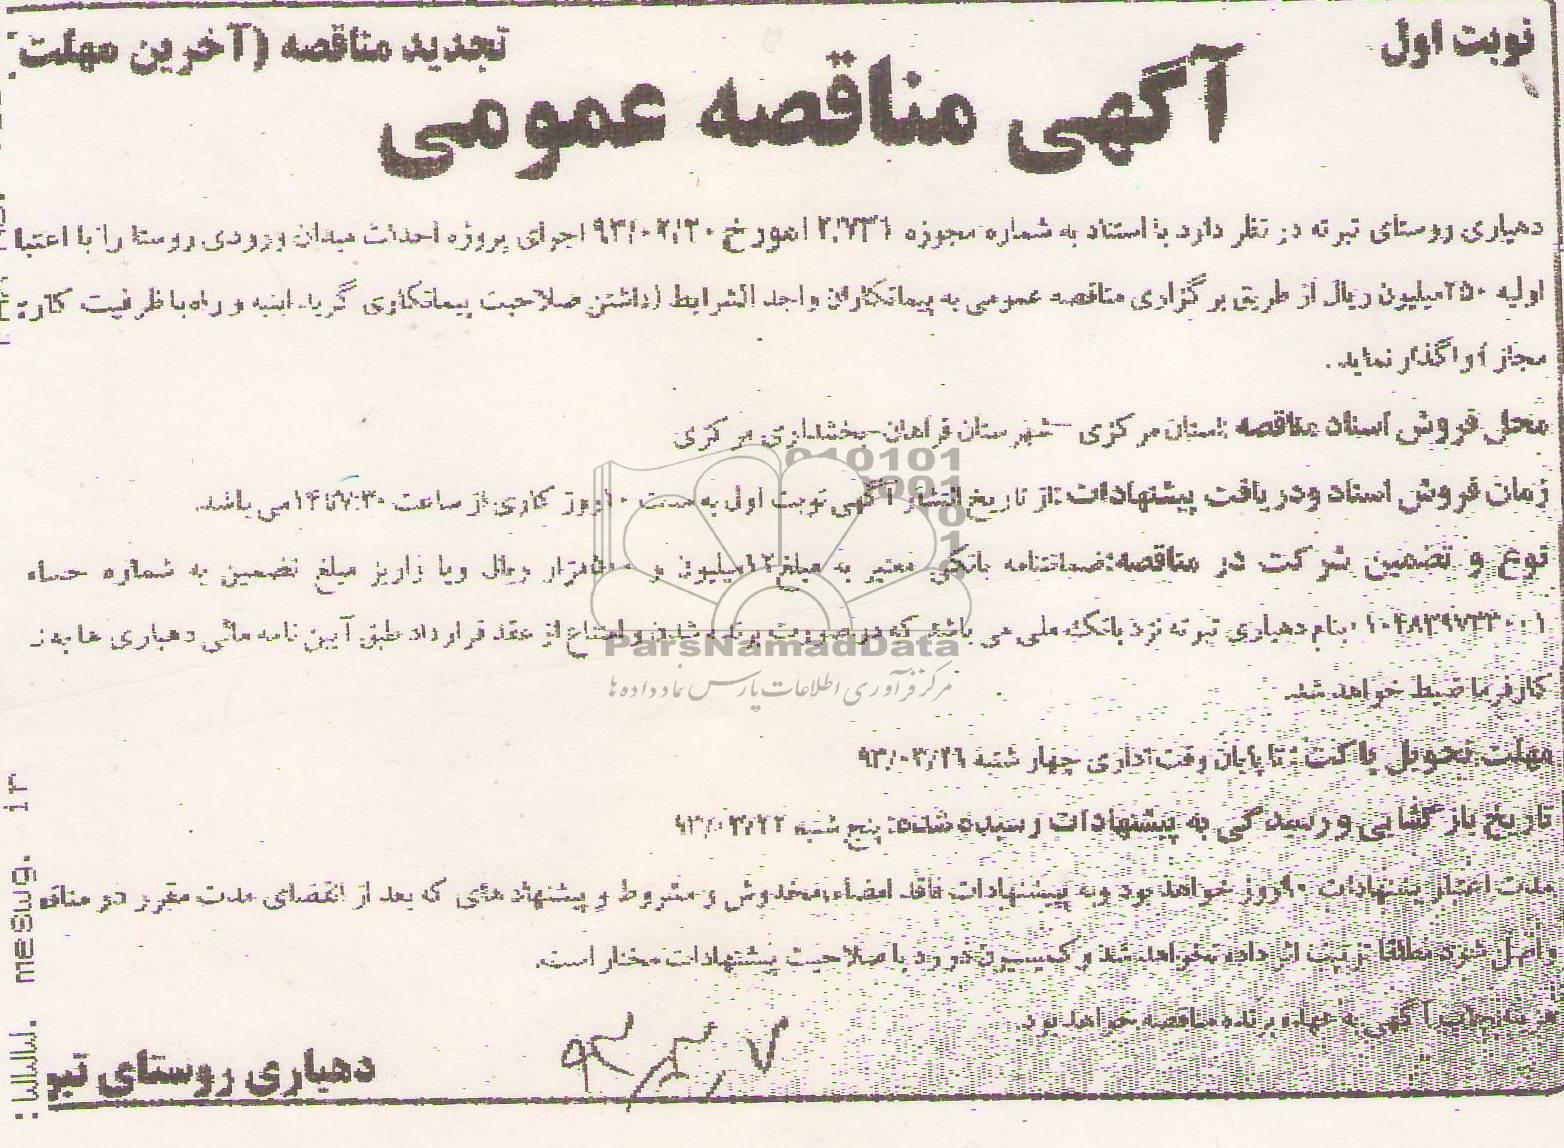 نوبت اول
تجدید مناقصه (آخرین مهلت)
آگهی مناقصه عمومی
دهیاری روستای تبرته در نظر دارد با استناد به شماره مجوزه مورخ ۹۳/۰۲/۲۰ اجرای پروژه احداث میدان ورودی روستا را با اعتبا
اولیه ۲۵۰میلیون ریال از طریق برگزاری مناقصه عمومی به پیمانکاران واجد الشرایط (داشتن صلاحیت پیمانکاری گرید ابنیه و راه با ظرفیت کاری
مجاز) واگذار نماید .
محل فروش اسناد مناقصه :استان مرکزی –شهرستان فراهان–بخشداری مرکزی
زمان فروش اسناد ودریافت پیشنهادات :از تاریخ انتشار آگهی نوبت اول به مدت ۱۰روز کاری از ساعت ۷:۳۰تا۱۴می باشد.
نوع و تضمین شرکت در مناقصه:ضمانتنامه بانکی معتبر به مبلغ۱۲میلیون و ۵۰۰هزار ریال ویا واریز مبلغ تضمین به شماره حسا
بنام دهیاری تبرته نزد بانک ملی می باشد که در صورت برنده شدن و امتناع از عقد قرارداد طبق آیین نامه مالی دهیاری ها بنفع
کارفرما ضبط خواهد شد.
مهلت تحویل پاکت : تا پایان وقت اداری چهار شنبه ۹۳/۰۳/۲۱
تاریخ بازگشایی و رسیدگی به پیشنهادات رسیده شده: پنج شنبه ۹۳/۰۳/۲۲
مدت اعتبار پیشنهادات روز خواهد بود وبه پیشنهادات فاقد امضاء،مخدوش و مشروط و پیشنهادهای که بعد از انقضای مدت مقرر در مناقص
واصل شود مطلقا ترتیب اثر داده نخواهد شد و کمیسیون در رد یا صلاحیت پیشنهادات مختار است.
هزینه چاپ آگهی به عهده برنده مناقصه خواهد بود.
دهیاری روستای تبر
۹۳/۳/۷
ParsNamadData
مرکز فرآوری اطلاعات پارس نماد داده ها